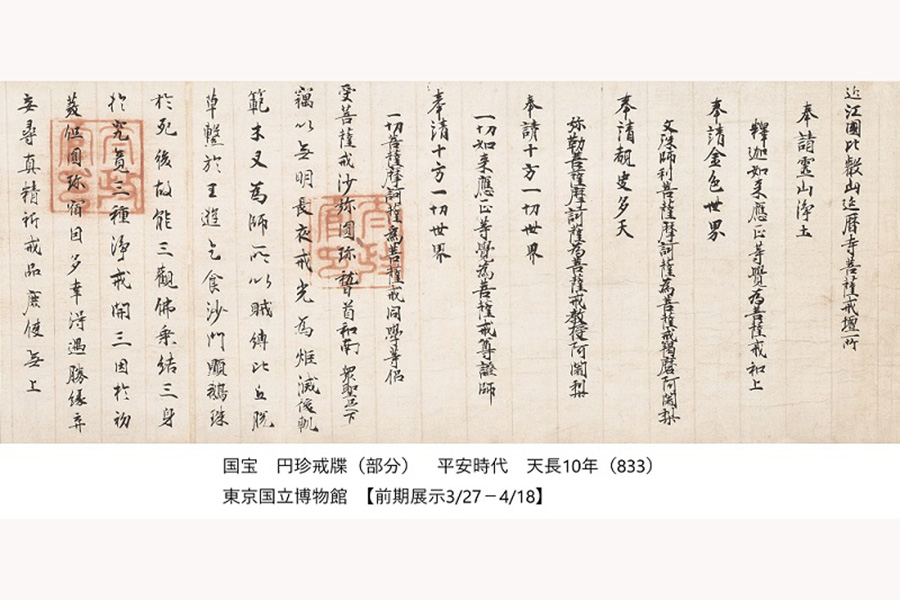 近江國比叡山延暦寺菩薩戒壇所
奉請靈山淨土
釋迦如来應正等覺為菩薩戒和上
奉請金色世界
文殊師利菩薩摩訶薩為菩薩戒羯磨阿闍梨
奉請覩史多天
弥勒菩薩摩訶薩為菩薩戒教授阿闍梨
奉請十方一切世界
一切如来應正等覺為菩薩戒尊證師
奉請十方一切世界
一切菩薩摩訶薩為菩薩戒同學等侶
受菩薩戒沙弥圓珎稽首和南 衆聖足下
竊以無明長夜戒光為炬滅後軌
範木叉為師所以賊縛比丘脱
草繫於王遊乞食沙門顯鵝珠
於死後故能三觀佛乗結三身
於究竟三種淨戒開三因於初
茲但圓珎宿因多幸得遇勝縁弃
妄尋真精祈戒品庶使無上
国宝 円珍戒牒（部分） 平安時代 天長10年（833）
東京国立博物館 【前期展示3/27－4/18】